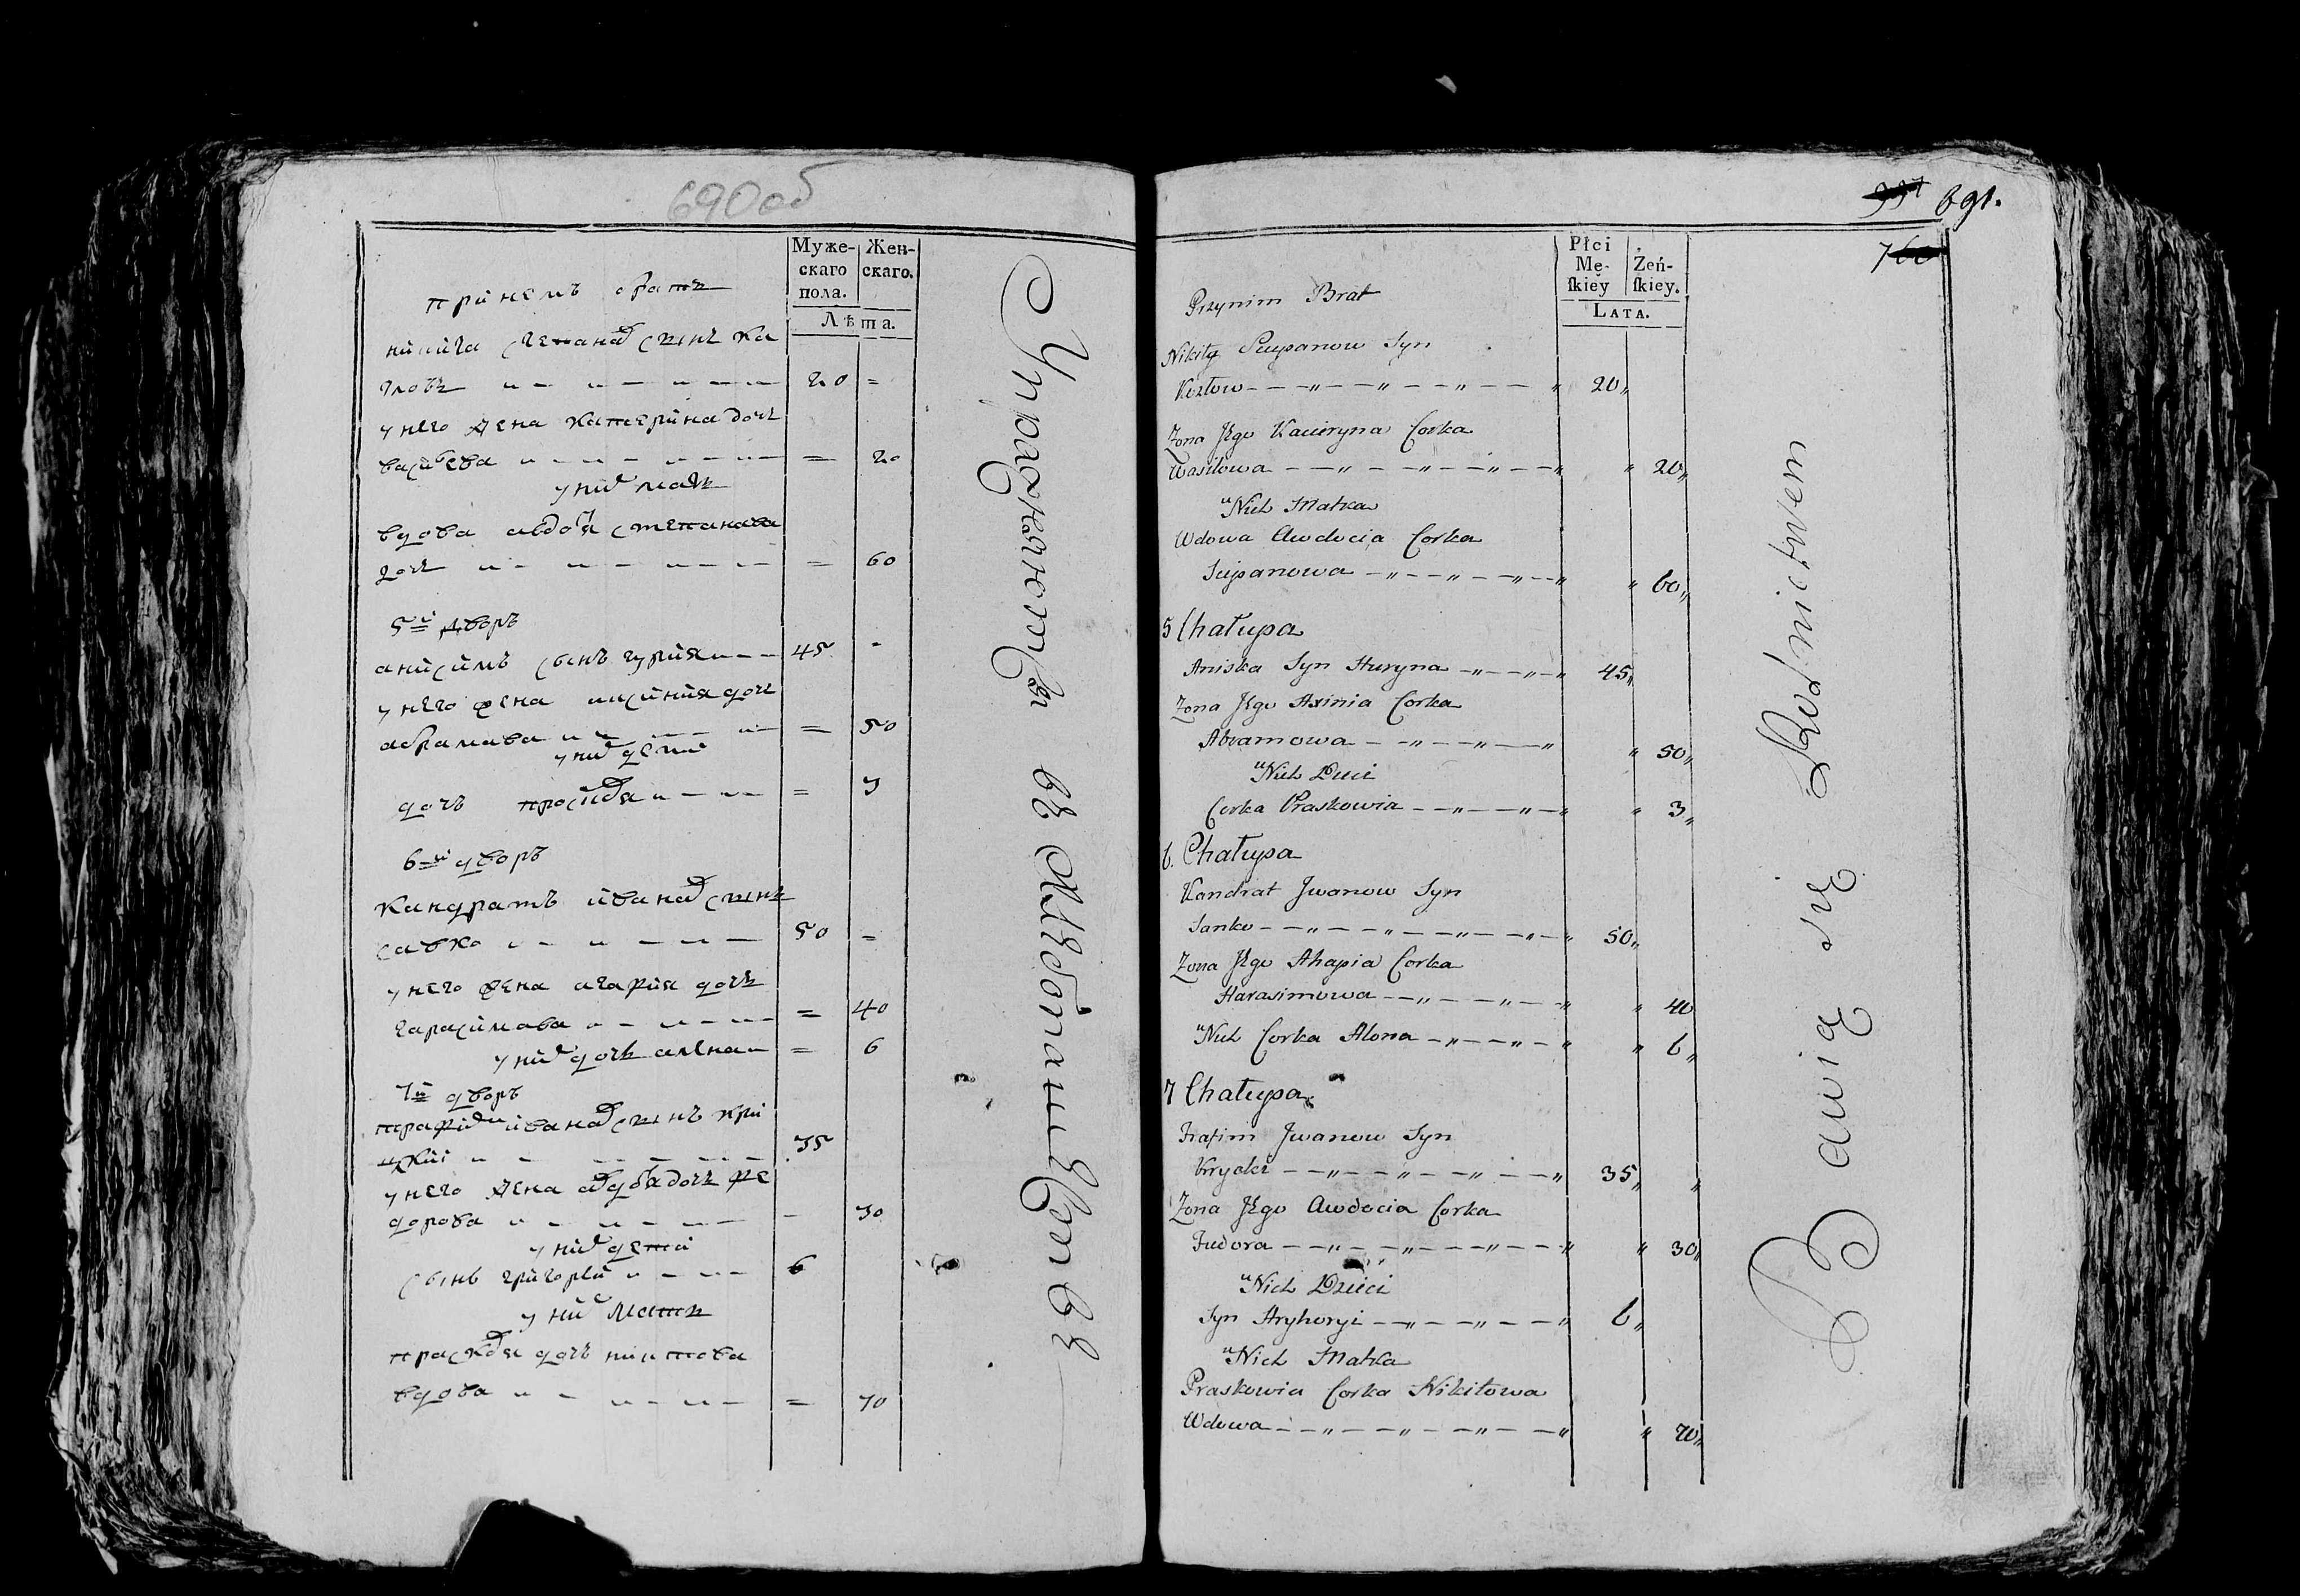 690об
Муже-
скаго
пола.
Жен-
скаго.
Лѣта.
при немъ братъ
никита степановъ сынъ ка
зловъ 20 =
у него жена катерина дочь
васильева = 20
у них мать
вдова авдотя степанава
дочь = 60
5й дворъ
анисимъ сынъ гурина 45 -
у него жена аксиния дочь
абрамава = 50
у них дети
дочь просковя = 3
6-й дворъ
кандратъ иванов сынъ
савко 50 =
у него жена агафия дочь
гарасимава = 40
у них дочь алена = 6
7й дворъ
трафим иванов сынъ кри
цкиі 35
у него жена авдотя дочь фе
дорова - 30
у них дети
сынъ григорей 6
у них мать
прасковя дочь никитова
вдова = 70
Упражняются въ Хлебопашествъ
991 691.
760
Płci
Mę-
ſkiey
Żeń-
ſkiey.
LATA.
Przynim Brat
Nikity Sciepanow Syn
Kozłow 20
Zona Jego Kacieryna Corka
Wasilowa 20
u Nich Matka
Wdowa Awdocia Corka
Sciepanowa 60
5 Chałupa
Aniska Syn Huryna 45
Zona Jego Axinia Corka
Abramowa 50
u Nich Dzieci
Corka Praskowia 3
6. Chałupa
Kandrat Jwanow Syn
Sanko 50
Zona Jego Ahapia Corka
Harasimowa 40
u Nich Corka Alona 6
7 Chałupa
Trafim Jwanow Syn
Krycki 35
Zona Jego Awdocia Corka
Fiedora 30
u Nich Dzieci
Syn Hryhoryi 6
u Nich Matka
Praskowia Corka Nikitowa
Wdowa 70
Bawią się Rolnictwem